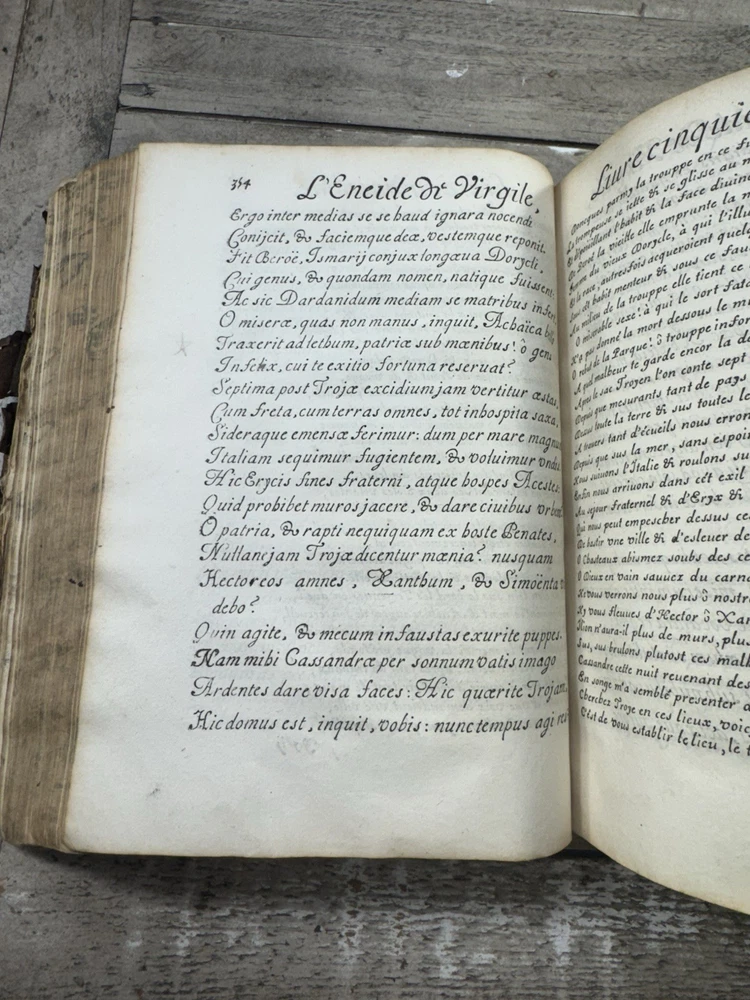 354
L'Eneide de Virgile,
Ergo inter medias se se haud ignara nocendi
Conijcit, & faciemque deæ, vestemque reponit.
Fit Beroë, Ismarij conjux longæua Dorycli,
Cui genus, & quondam nomen, natique fuissent
Ac sic Dardanidum mediam se matribus infert
O miseræ, quas non manus, inquit, Achaïca
Traxerit ad lethum, patriæ sub mœnibus! ô gens
Infelix, cui te exitio fortuna reseruat?
Septima post Trojæ excidium jam vertitur æstas
Cum freta, cum terras omnes, tot inhospita saxa,
Sideraque emensæ ferimur: dum per mare magnum
Italiam sequimur fugientem, & voluimur undis
Hic Erycis fines fraterni, atque hospes Acestes:
Quid prohibet muros jacere, & dare ciuibus urbem
O patria, & rapti nequiquam ex hoste Penates,
Nullane jam Trojæ dicentur mœnia? nusquam
Hectoreos amnes, Xanthum, & Simoënta
debo?
Quin agite, & mecum infaustas exurite puppes.
Nam mihi Cassandræ per somnum vatis imago
Ardentes dare visa faces: Hic quærite Trojam,
Hic domus est, inquit, vobis: nunc tempus agi res
Liure cinquie
Oncques parmy la trouppe en ce
La trompeuse se iette & se glisse au
Et d'pouillant l'habit & la face diuine
vieille elle emprunte la
du vieux Dorycle, à qui l'ill
Et la race, autresfois acqueroient quelq
habit menteur & sous ce
Au milieu de la trouppe elle tient ce
O miserable sexe! à qui le sort fata
N'a pas donné la mort dessous le mu
O rebut de la Parque! ô trouppe infor
A quel malheur te garde encor la de
Apres le sac Troyen l'on conte sept
Depuis que mesurants tant de pays
Dessus toute la terre & sus toutes le
A trauers tant d'écueils nous errons
Depuis que sus la mer, sans espoir
Nous suiuons l'Italie & roulons su
En En nous arriuons dans cét exil
Au sejour fraternel & d'Eryx &
Qui nous peut empescher dessus ce
De bastir vne ville & d'esleuer de
O Chasteaux abismez soubs des ce
O Dieux en vain sauuez du carne
Ne vous verrons nous plus ô nostr
Ny vous fleuues d'Hector ô Xan
Ilion n'aura-il plus de murs, plus
Sus, sus brulons plutost ces malh
Cassandre cette nuit reuenant des
En songe m'a semblé presenter a
Cherchez Troye en ces lieux, voic
C'est de vous establir le lieu, le t